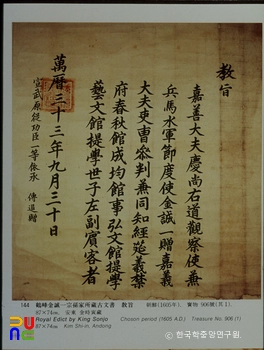 教旨
嘉善大夫慶尚右道觀察使兼
兵馬水軍節度使金誠一贈嘉義
大夫吏曹叅判兼同知經筵義禁
府春秋館成均館事弘文館提學
藝文館提學世子左副賓客者
萬曆三十三年九月三十日
宣武原從功臣一等依承 傳追贈
144 鶴峰金誠一宗孫家所藏古文書 教旨 朝鮮(1605年) 寶物 906號(其1).
87×74cm. 安東 金時寅藏
Royal Edict by King Sonjo Choson period (1605 A.D.) Treasure No. 906 (1)
87×74cm Kim Shi-in, Andong
© 한국학중앙연구원.